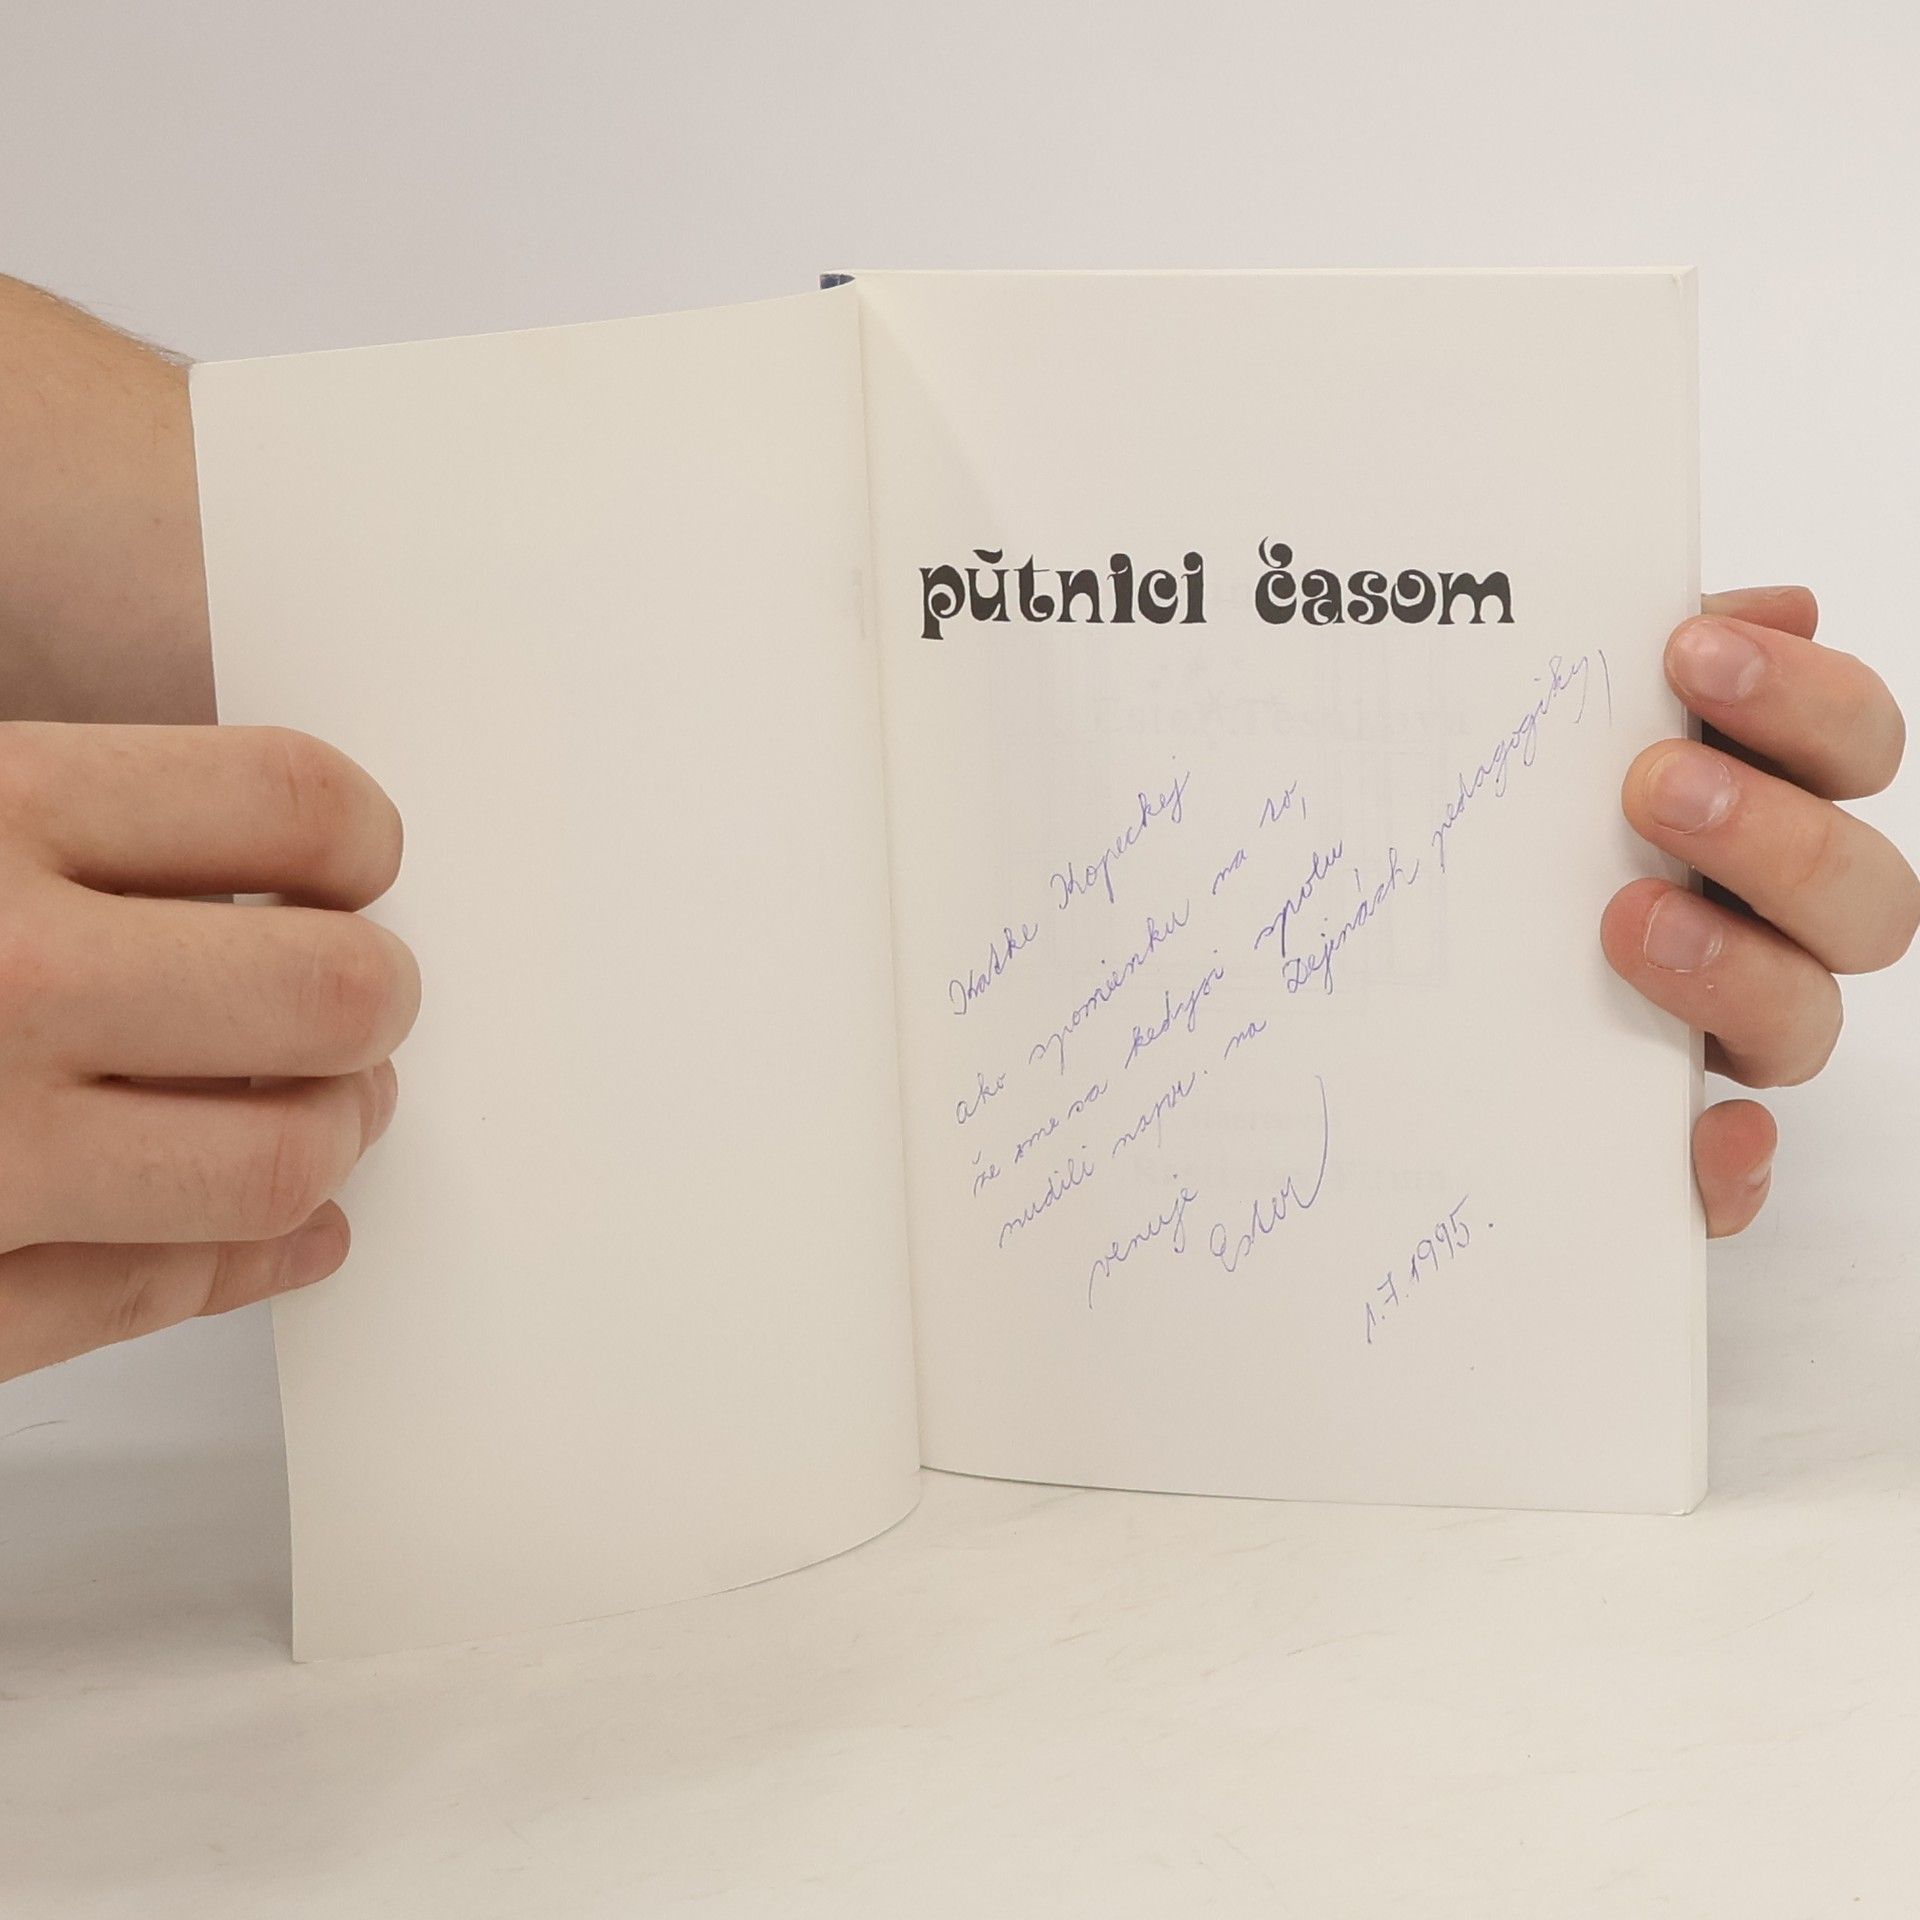 pútnici časom
Katke Kopeckej
ako spomienku na to,
že sme sa kedysi spolu
nudili napr. na Dejinách pedagogiky,
venuje
Ester
1.7.1995.